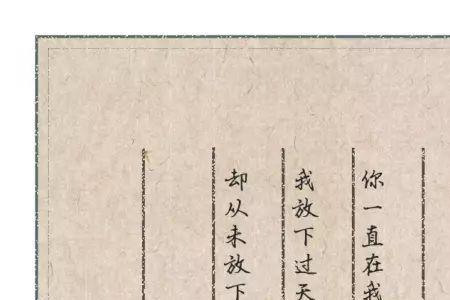 你一直在我
我放下过天
却从未放下